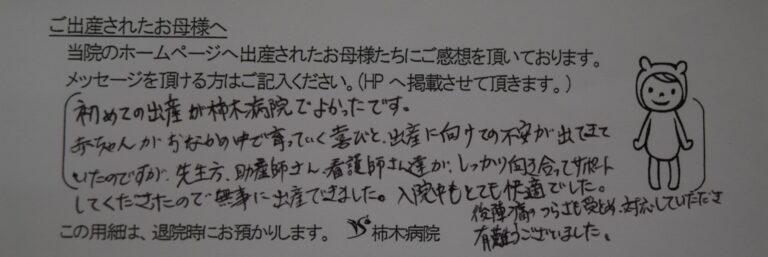 ご出産されたお母様へ
当院のホームページへ出産されたお母様たちにご感想を頂いております。
メッセージを頂ける方はご記入ください。(HPへ掲載させて頂きます。)
初めての出産が柿木病院でよかったです。
赤ちゃんがおなかの中で育っていく喜びと、出産に向けての不安が出てきて
いたのですが、先生方、助産師さん看護師さん達が、しっかり向き合ってサポート
してくださったので無事に出産できました。入院中もとても快適でした。
後陣痛のつらさも受とめ、対応していただき
有難うございました。
この用紙は、退院時にお預かりします。 柿木病院